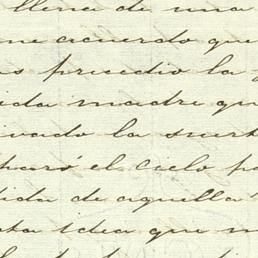 llena de una
me acuerdo que
precedio la
ida madre qu
ivado la suert
paró el cielo pa
dida de aquella
ta idea que m